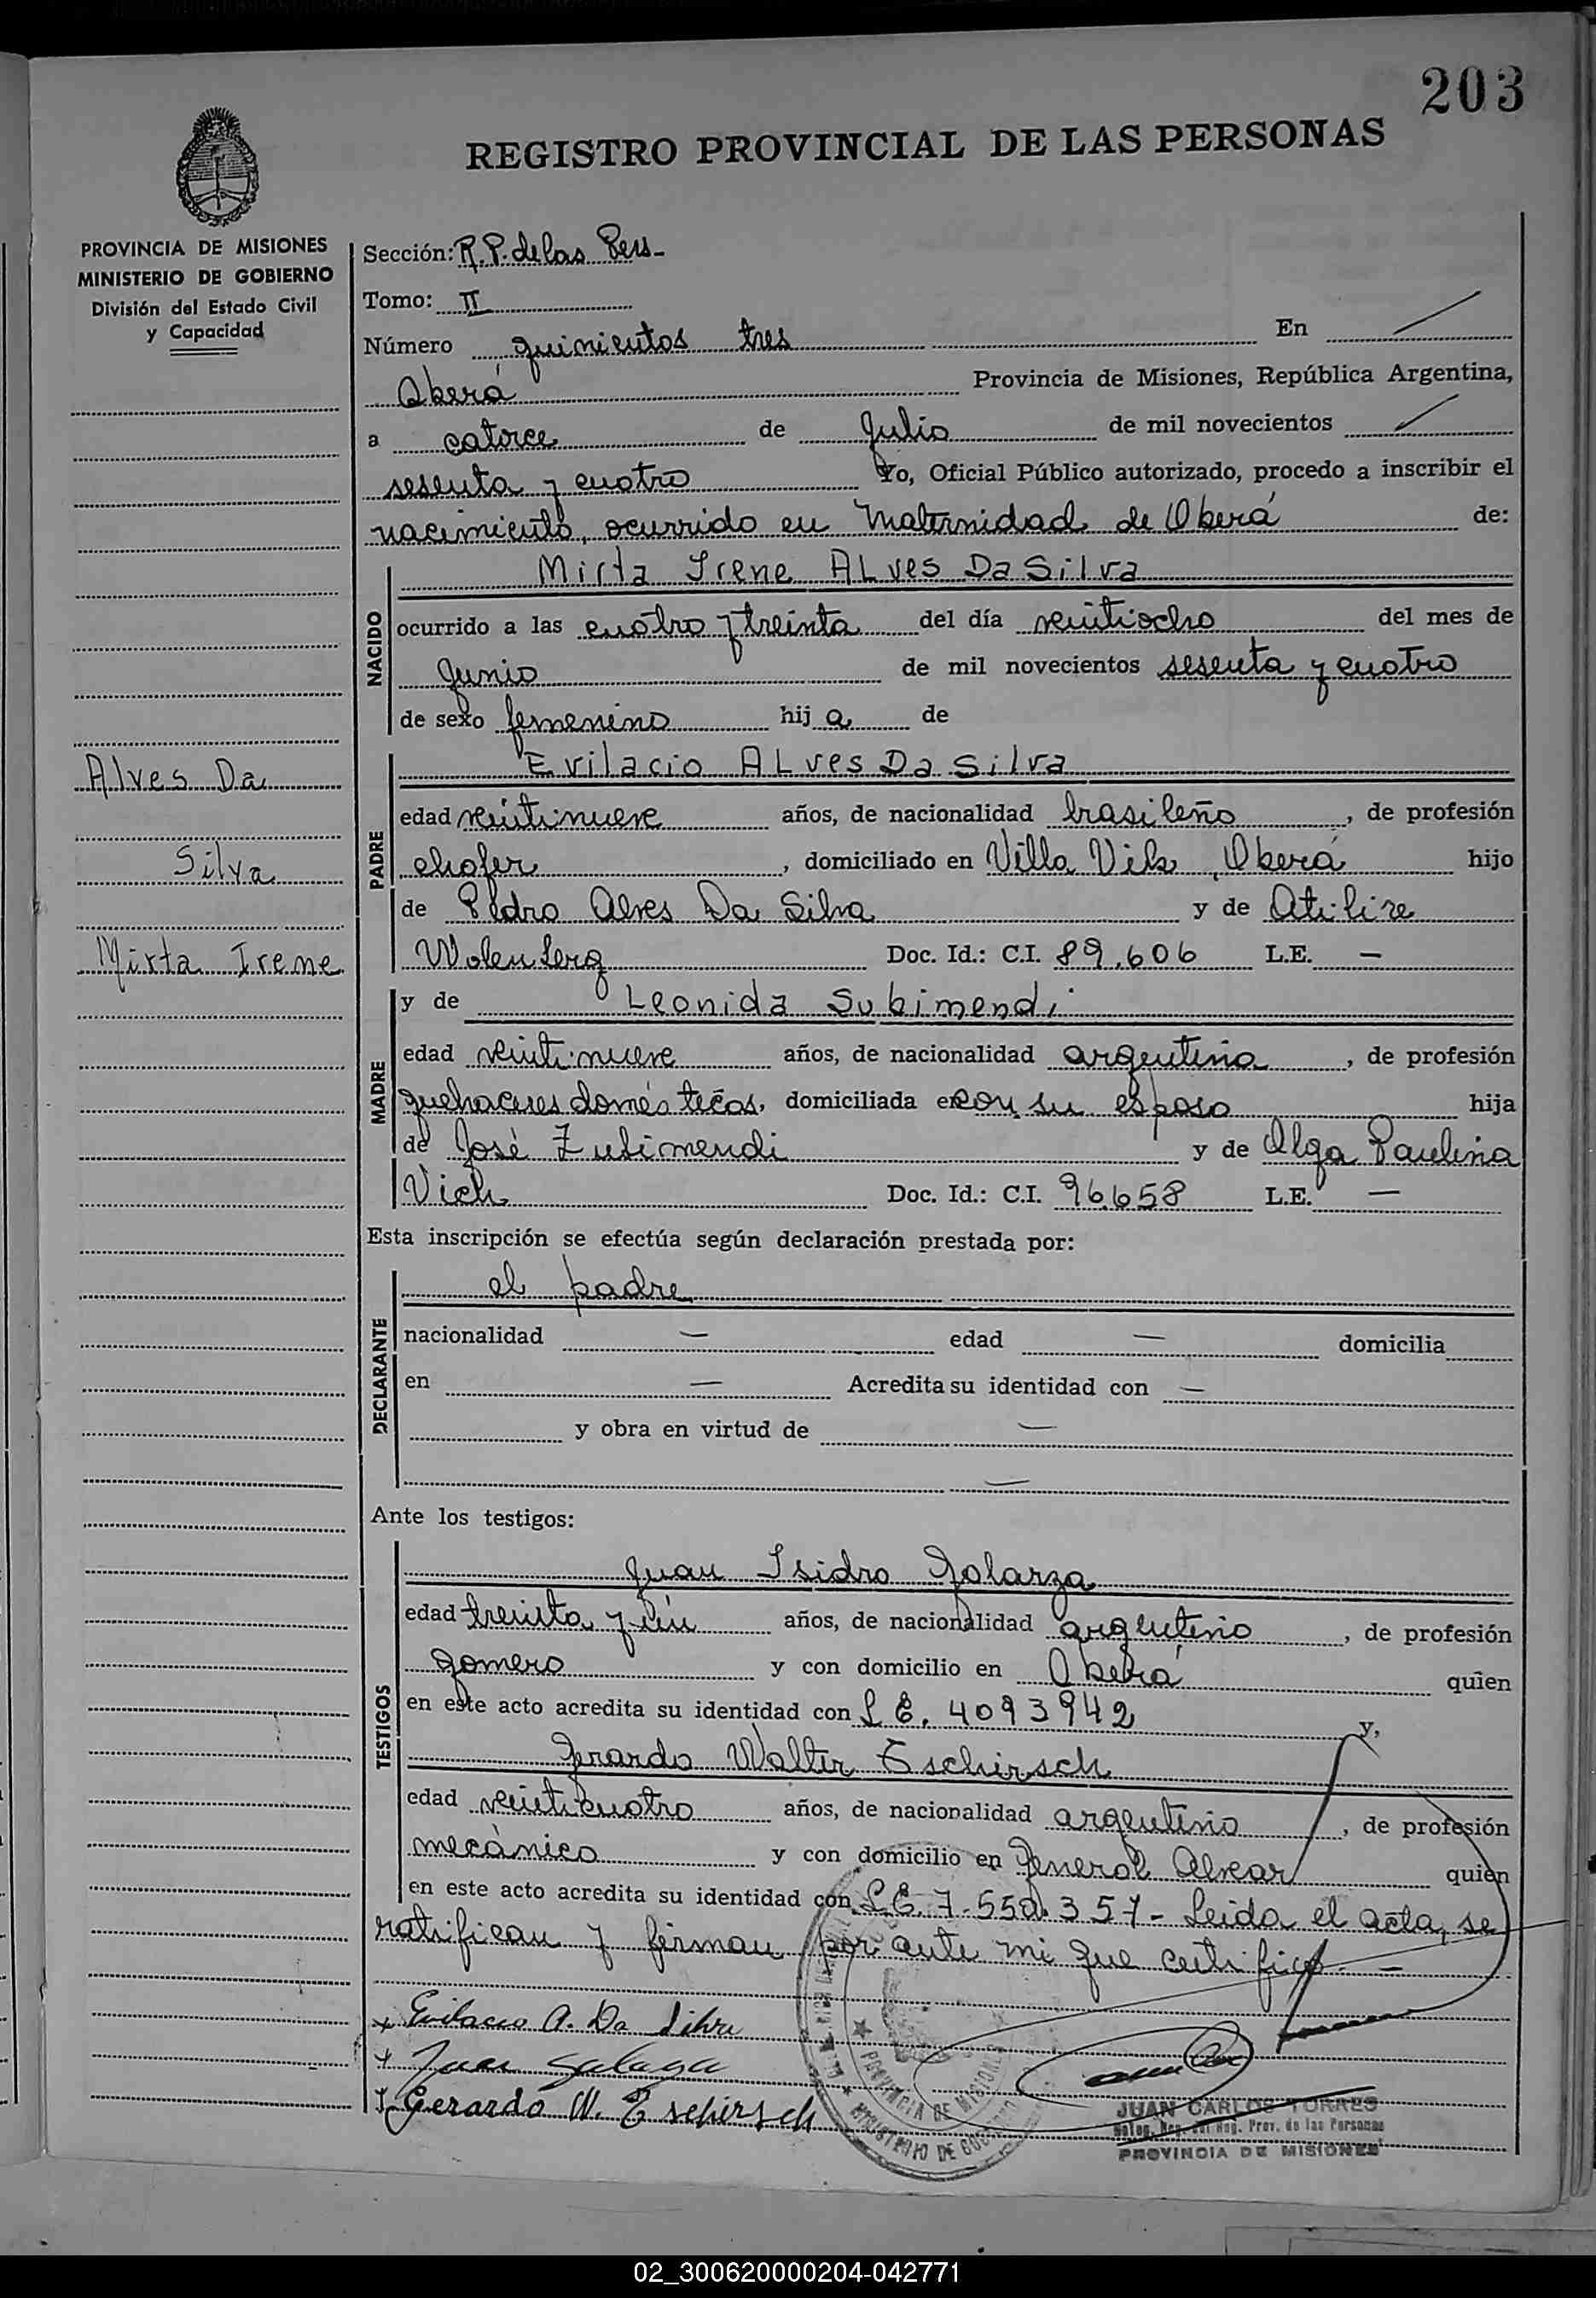 203
REGISTRO PROVINCIAL DE LAS PERSONAS
PROVINCIA DE MISIONES
MINISTERIO DE GOBIERNO
División del Estado Civil
y Capacidad
Alves Da
Silva
Mirta Irene
Sección: R. P. de las Pers-
Tomo: II
Número quinientos tres En
Oberá Provincia de Misiones, República Argentina,
a catorce de Julio de mil novecientos
sesenta y cuatro Yo, Oficial Público autorizado, procedo a inscribir el
nacimiento, ocurrido en Maternidad de Oberá de:
NACIDO
Mirta Irene ALves Da Silva
ocurrido a las cuatro y treinta del día veintiocho del mes de
Junio de mil novecientos sesenta y cuatro
de sexo femenino hij a de
PADRE
Evilacio ALves Da Silva
edad veintinueve años, de nacionalidad brasileño, de profesión
chofer, domiciliado en Villa Oberá hijo
de Pedro Alves Da Silva y de
Doc. Id.: C.I. 89.606 L.E. —
MADRE
y de Leonida Subimendi
edad veintinueve años, de nacionalidad argentina, de profesión
quehaceres domésticos, domiciliada e con su esposo hija
de José Zubimendi y de Olga Paulina
Vich Doc. Id.: C.I. 96.658 L.E. —
Esta inscripción se efectúa según declaración prestada por:
DECLARANTE
el padre
nacionalidad — edad — domicilia
en — Acredita su identidad con —
y obra en virtud de —
—
Ante los testigos:
TESTIGOS
Juan Isidro Galarza
edad treinta y un años, de nacionalidad argentino, de profesión
gomero y con domicilio en Oberá quien
en este acto acredita su identidad con L.E. 4093942 y,
Gerardo Walter Eschirsch
edad veinticuatro años, de nacionalidad argentino, de profesión
mecánico y con domicilio en General Alvear quien
en este acto acredita su identidad con L.E. 7.550.357- Leida el acta, se
ratifican y firman por ante mi que certifico. —
Evilacio A. Da Silva
Juan Galarza
Gerardo W. Eschirsch
PROVINCIA DE MISIONES
MINISTERIO DE GOBIERNO
JUAN CARLOS TORRES
Reg. Prov. de las Personas
PROVINCIA DE MISIONES
02_300620000204-042771